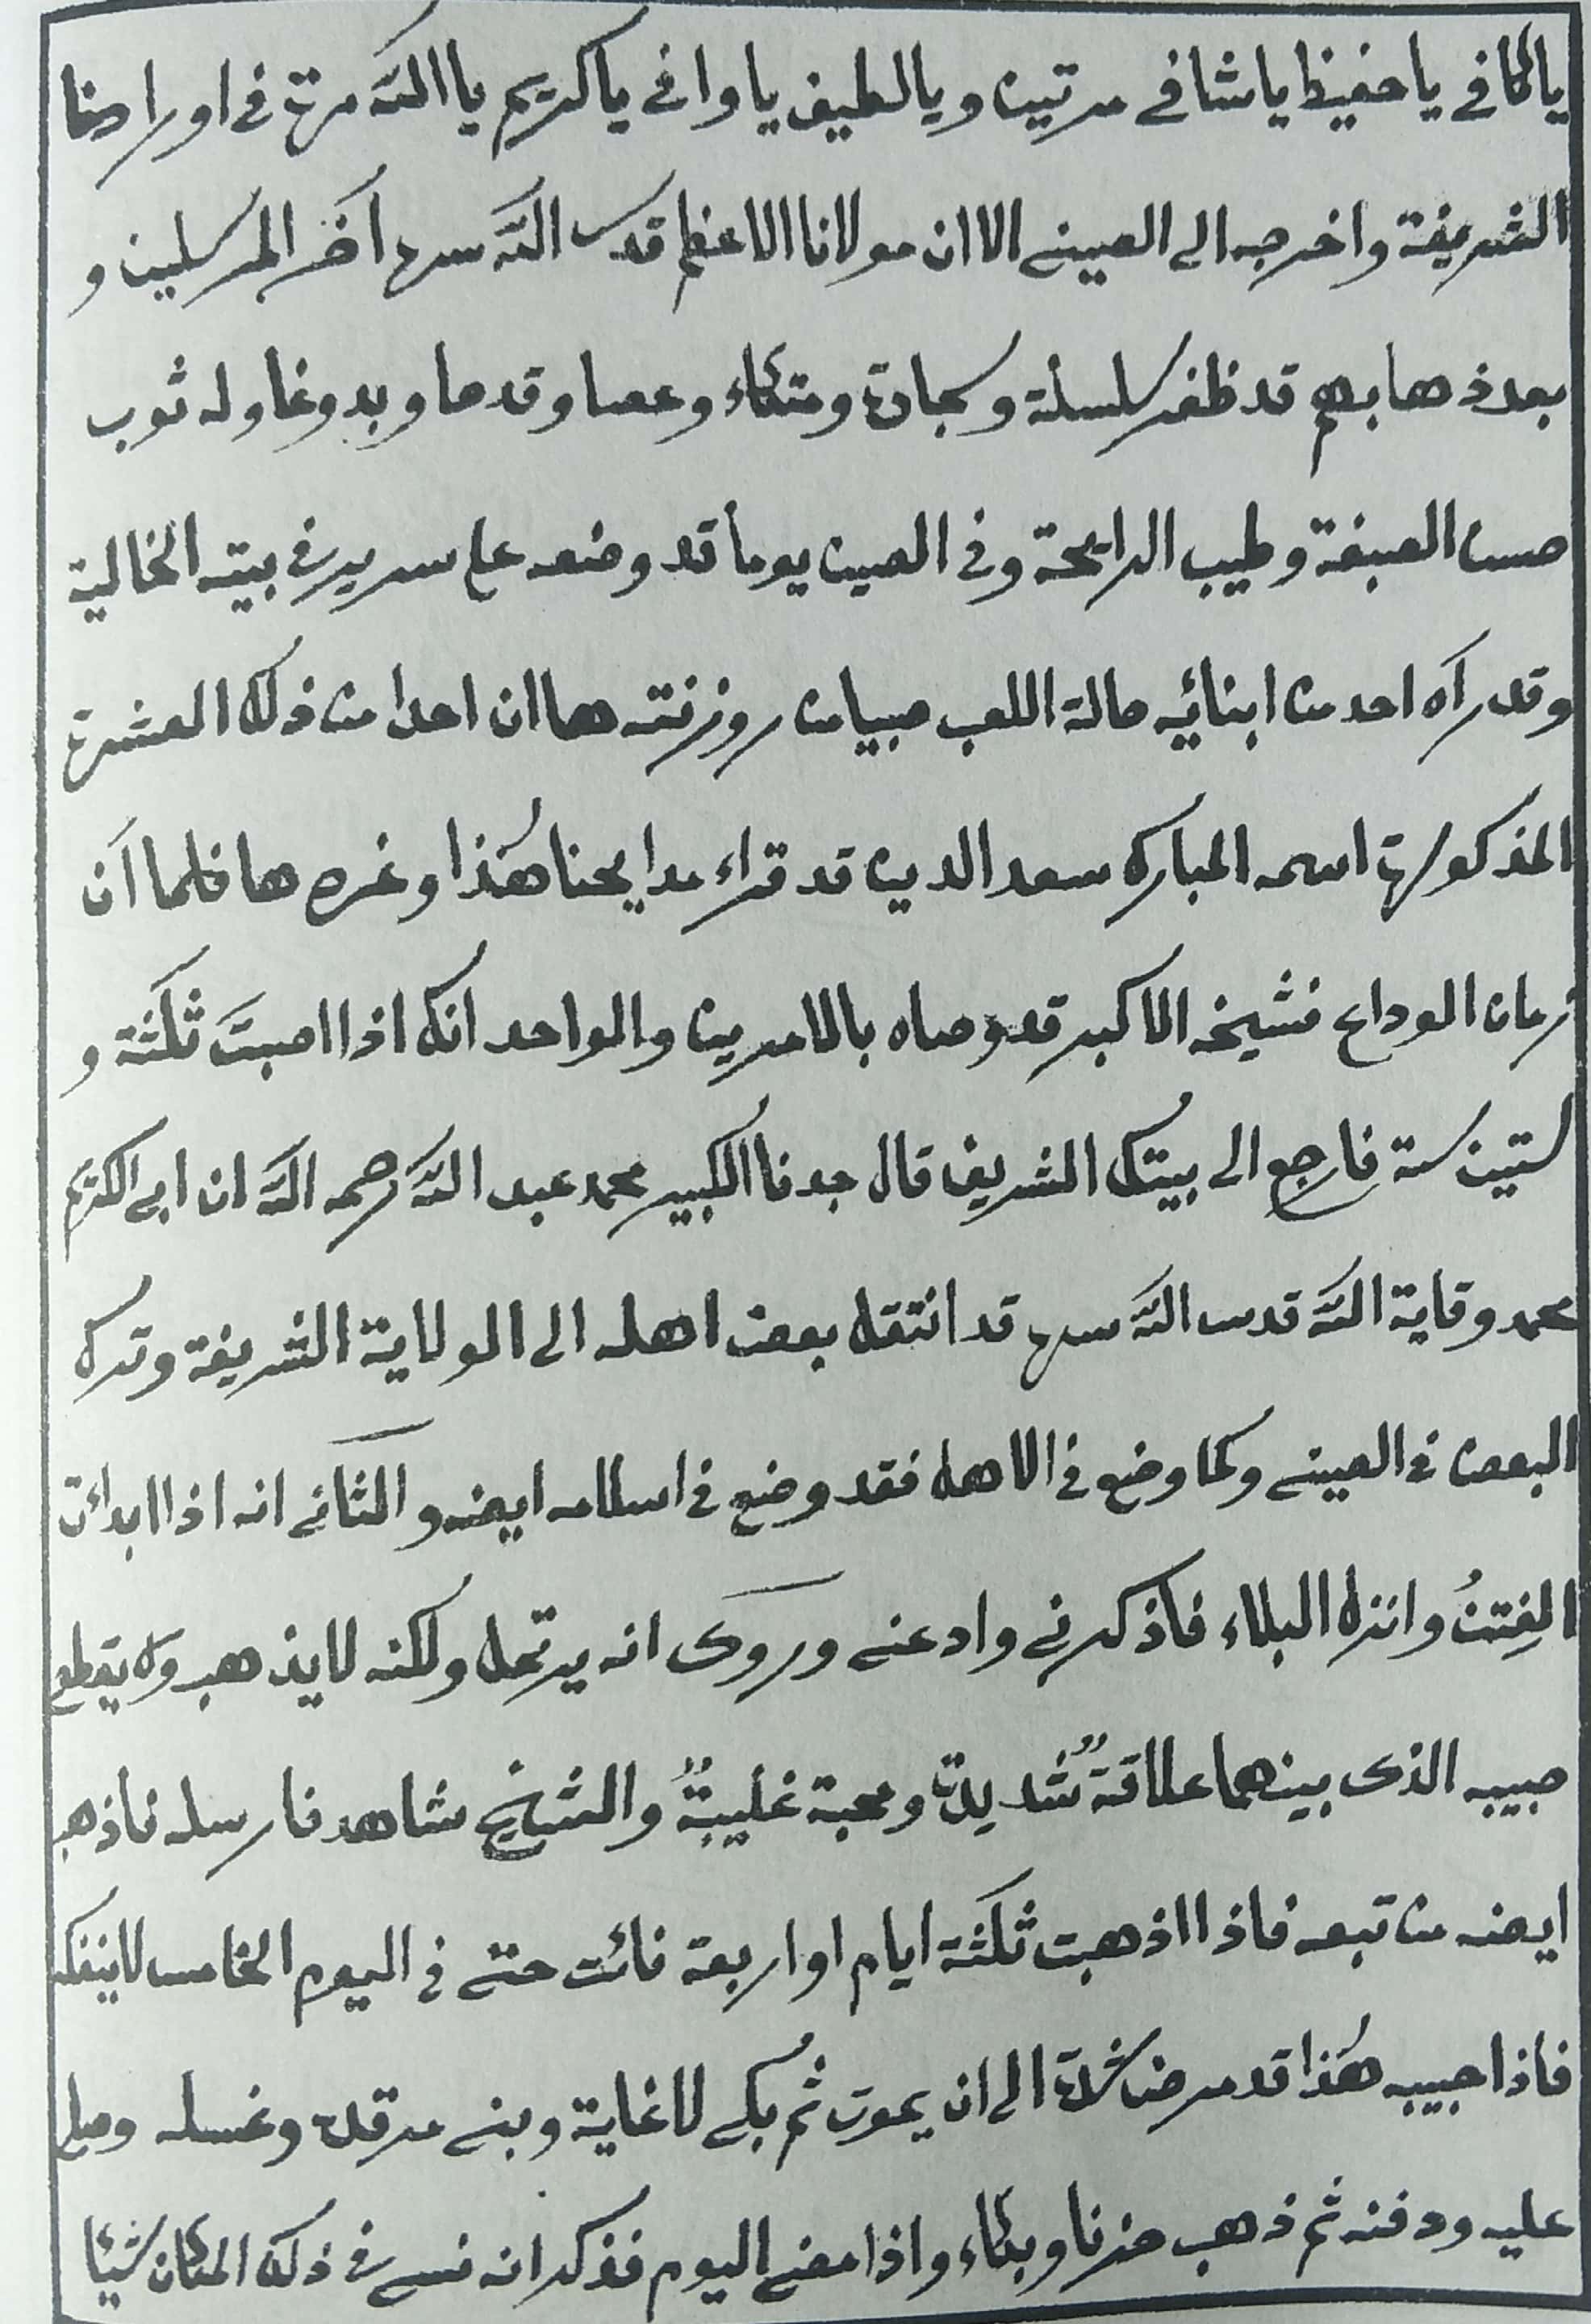 يا كافي يا حفيظ يا شافي مرتين و يا لطيف يا وافي يا كريم يا الله مرة في اورادنا
الشريفة واخرجه الى الصيني الا ان مولانا الاعظم قدس الله سره آخر المرسلين و
بعد ذهابهم قد ظفر سلسلة وسجادة ومتكاء وعصا وقدما وبدوغا وله ثوب
حسن الصبغة وطيب الرايحة وفي الصين يوما قد وضعه على سرير في بيته الخالية
وقد رآه احد من ابنائه حالة اللعب صبيا من روزنته هاان احدا من ذلك العشرة
المذكورة اسمه المبارك سعد الدين قد قراء مدايحنا هٰذا وغره ها فلما آن
زمان الوداع فشيخه الاكبر قد وصاه بالامرين والواحد انك اذا اصبتَ ثلٰثة و
ستين سنة فارجع الى بيتك الشريف قال جدنا الكبير محمد عبد الله رحمه الله ان ابي الكريم
محمد وقاية الله قدس الله سره قد انتقل بعض اهله الى الولاية الشريفة وترك
البعض في الصيني وكما وضع في الاهل فقد وضع في اسلامه ايضه والثاني انه اذا ابدائت
الفِتنُ وانزل البلاء فاذكرني وادعني وروى انه يرتحل ولكنه لا يذهب ولا يقطع
حبيبه الذى بينهما علاقةٌ شديدةٌ ومحبة غليبةٌ والشيخ شاهد فارسله فاذهب
ايضه من تبعه فاذا اذهبت ثلٰثة ايام او اربعة فائت حتى في اليوم الخامس لا ينفك
فاذا حبيبه هٰذا قد مرض شدة الى ان يموت ثم بكى لا غاية وبنى مرقده وغسله وصلى
عليه ودفنه ثم ذهب حزنا وبكاء واذا مضى اليوم فذكر انه نسي في ذلك المكان شيئا